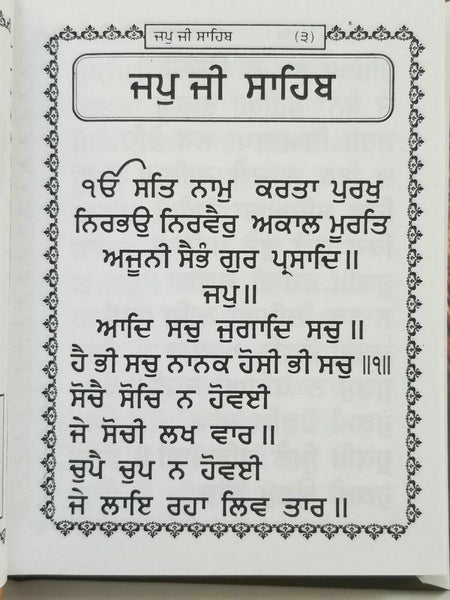 ਜਪੁ ਜੀ ਸਾਹਿਬ (੩)
ਜਪੁ ਜੀ ਸਾਹਿਬ
ੴ ਸਤਿ ਨਾਮੁ ਕਰਤਾ ਪੁਰਖੁ
ਨਿਰਭਉ ਨਿਰਵੈਰੁ ਅਕਾਲ ਮੂਰਤਿ
ਅਜੂਨੀ ਸੈਭੰ ਗੁਰ ਪ੍ਰਸਾਦਿ॥
ਜਪੁ॥
ਆਦਿ ਸਚੁ ਜੁਗਾਦਿ ਸਚੁ॥
ਹੈ ਭੀ ਸਚੁ ਨਾਨਕ ਹੋਸੀ ਭੀ ਸਚੁ ॥੧॥
ਸੋਚੈ ਸੋਚਿ ਨ ਹੋਵਈ
ਜੇ ਸੋਚੀ ਲਖ ਵਾਰ॥
ਚੁਪੈ ਚੁਪ ਨ ਹੋਵਈ
ਜੇ ਲਾਇ ਰਹਾ ਲਿਵ ਤਾਰ॥